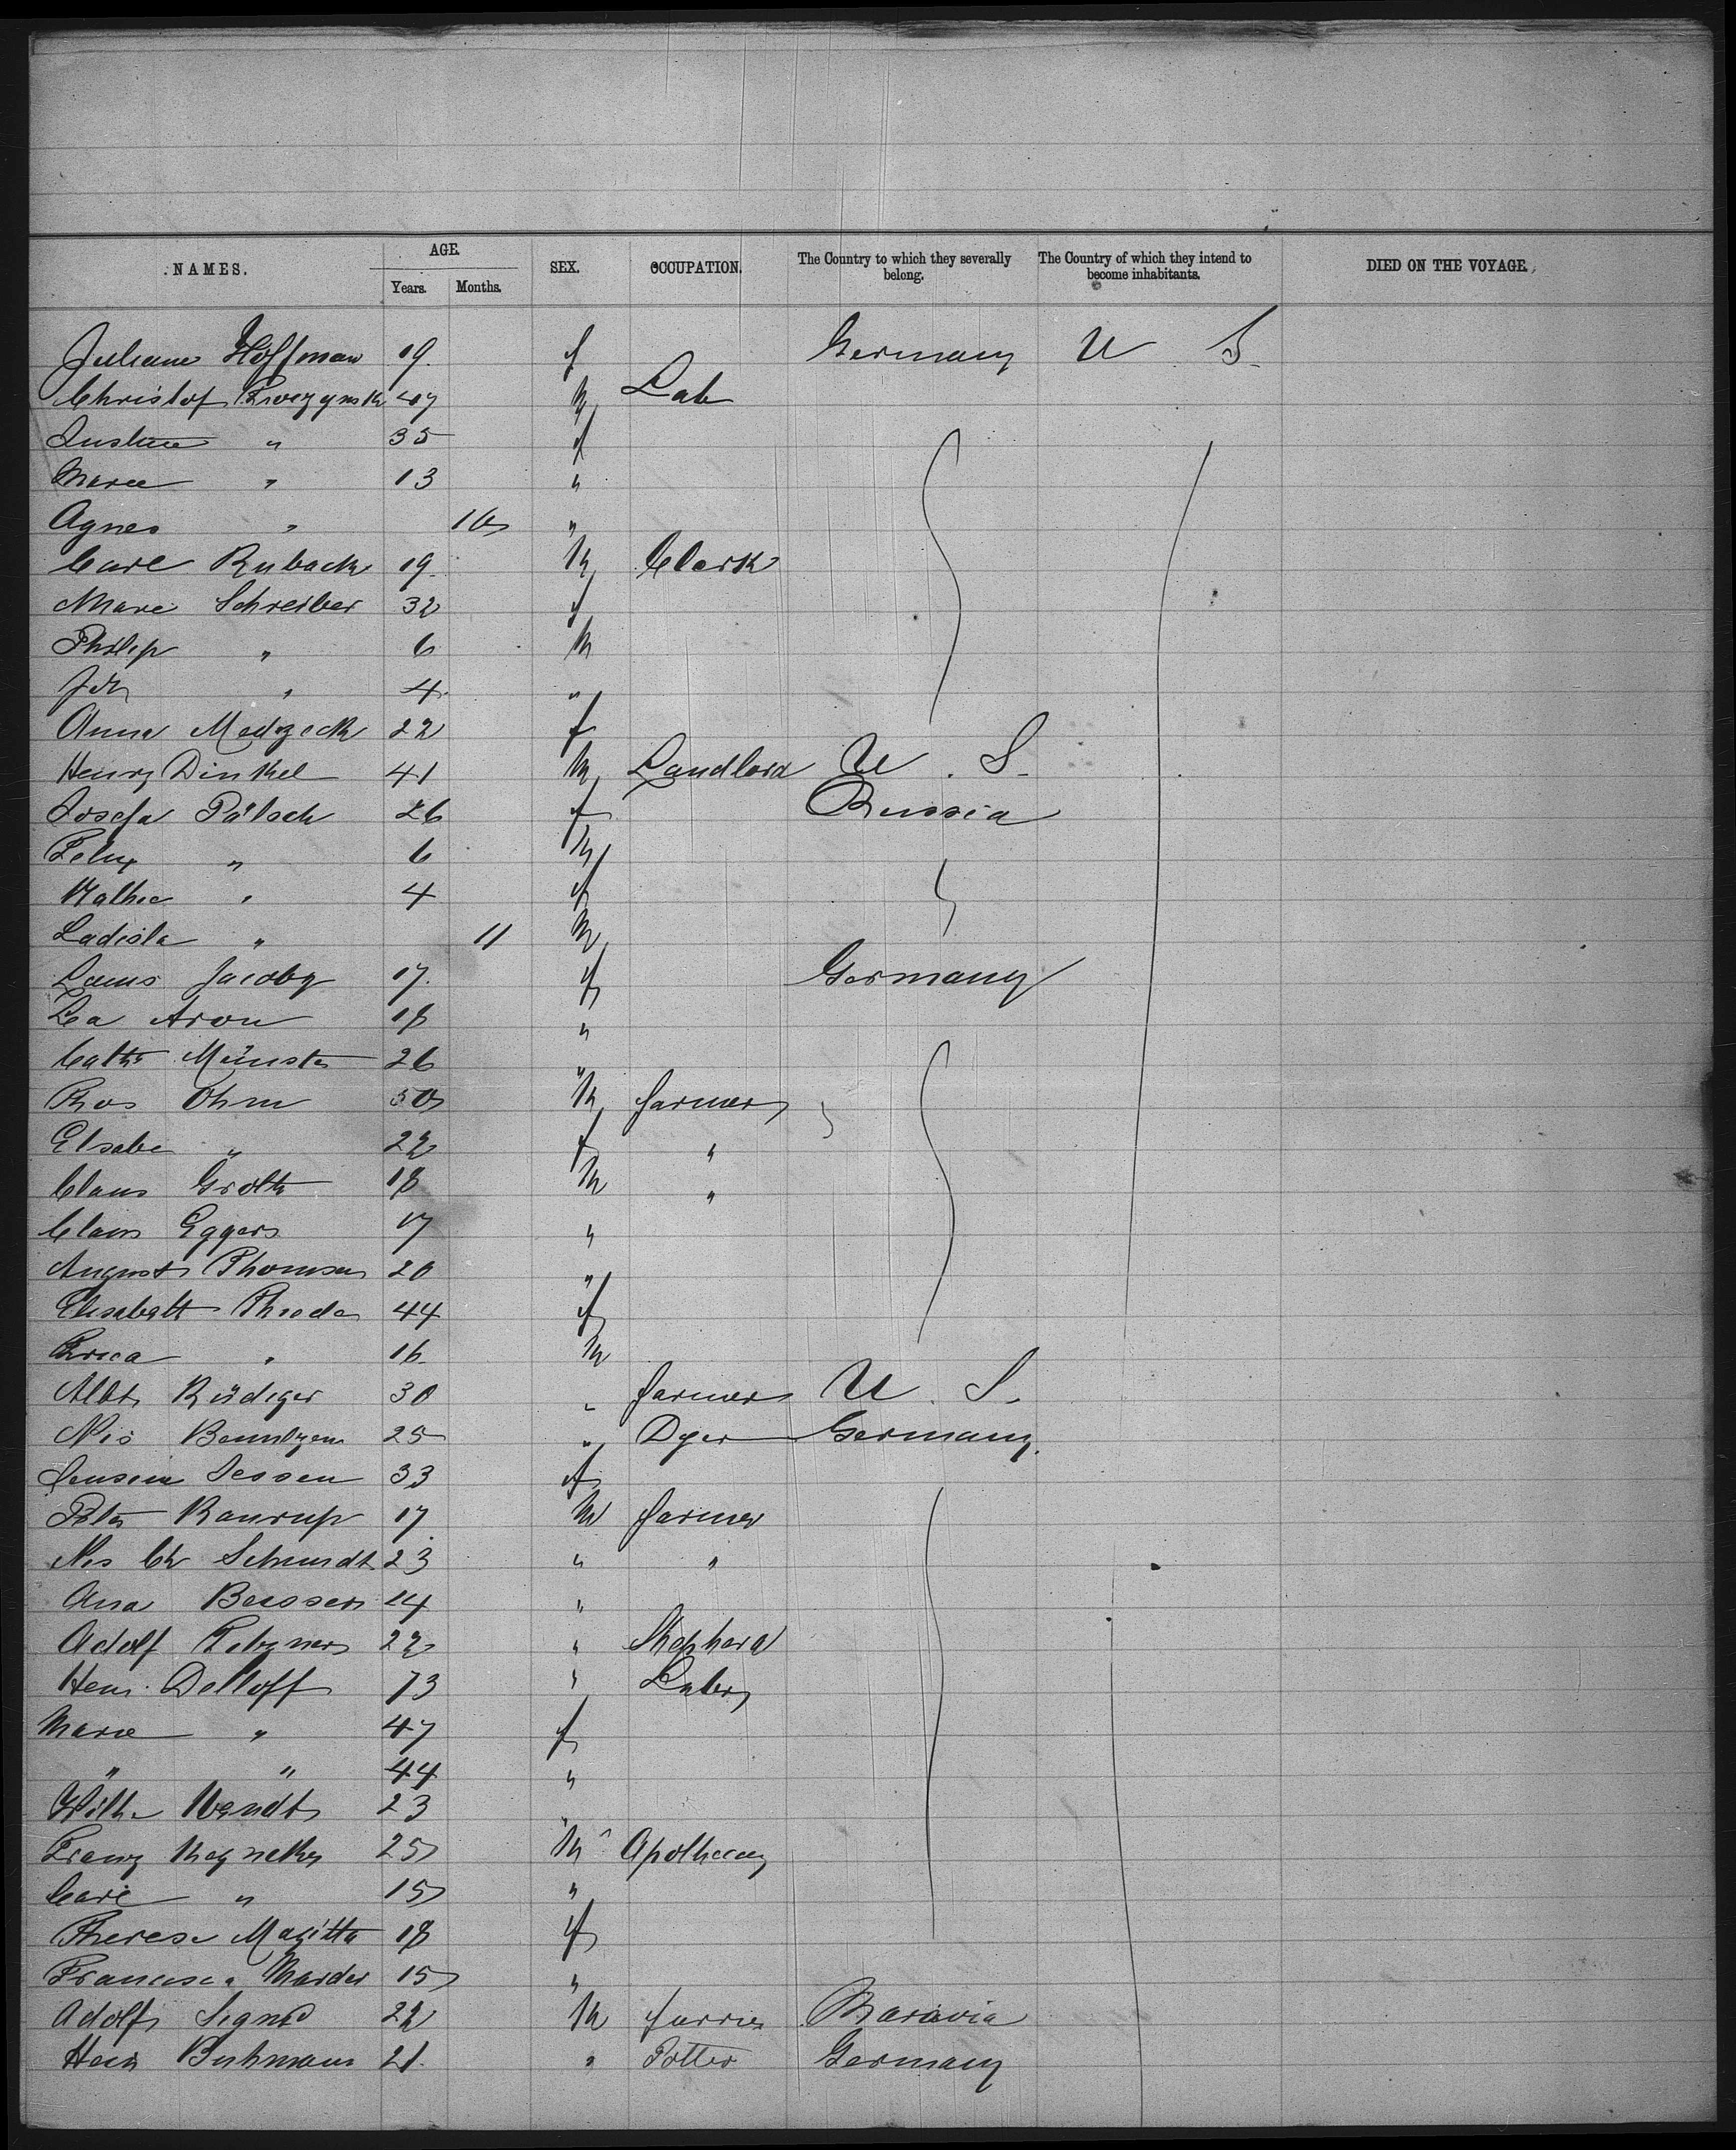 NAMES. AGE. Years. Months. SEX. OCCUPATION. The Country to which they severally belong. The Country of which they intend to become inhabitants. DIED ON THE VOYAGE.
Juliane Hoffman 19 f Germany U S
Christof 47 m Lab
" 35 f
Marie " 13 "
Agnes " 10 "
Carl Ruback 19 m Clerk
Marie Schreiber 32 f
Philip " 6 m
Joh " 4 "
Anna 22 f
Henry Dinkel 41 m Landlord U. S.
Josefa Pätsch 26 f Russia
Felix " 6 m
" 4 f
Ladisla " 11 m
Jacoby 17 f Germany
Lea Aron 18 "
Cath Münster 26 "
Ohm 50 m farmer
Elsabe " 22 f "
Claus Groth 18 m "
Claus Eggers 17 "
August Thomsen 20 "
Elisabeth 44 f
" 16 m
Albt Rüdiger 30 " farmer U. S.
Nis 25 " Dyer Germany
Jessen 33 f
Peter Raurup 17 m farmer
Nis Ch Schmidt 23 " "
Ana 14 "
Adolf 22 " Shepherd
Henr. Delloff 73 " Labor
Marie " 47 f
" " 44 "
Wilh Wendt 23 "
Franz 25 m Apothecary
Carl " 15 "
Therese 18 f
Francisca Marder 15 "
Adolf 22 m furrier Baravia
Hein Buhmann 21 " Potter Germany